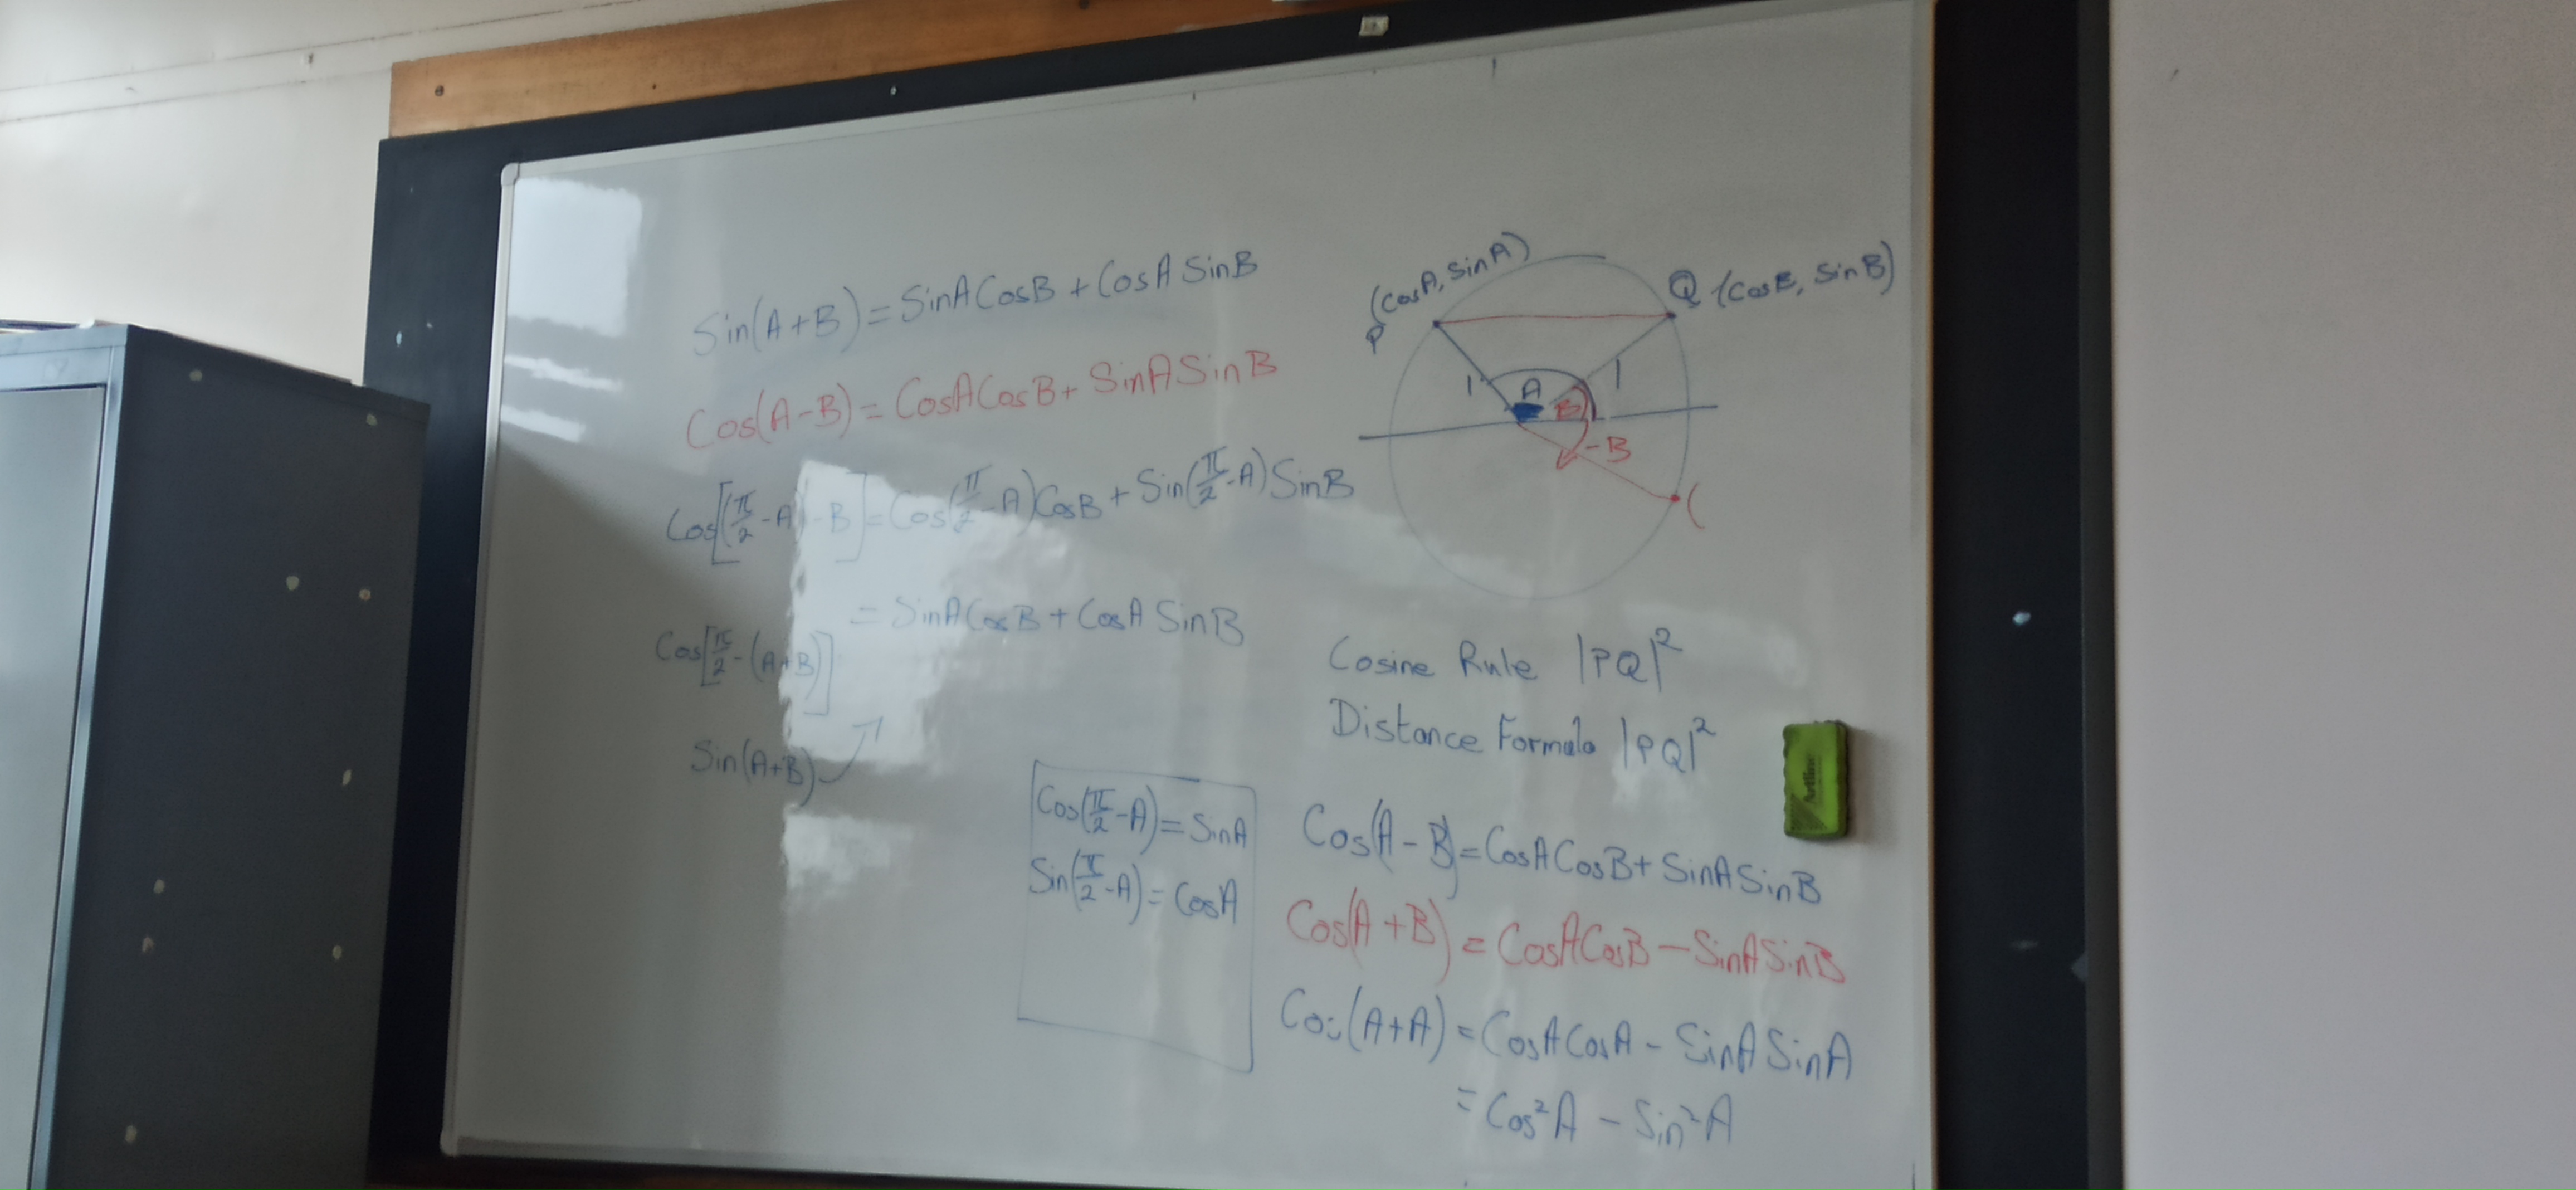 Sin(A+B) = SinA CosB + CosA SinB
Cos(A-B) = CosA CosB + SinA SinB
Cos[(π/2 - A) - B] = Cos(π/2 - A) CosB + Sin(π/2 - A) SinB
= SinA CosB + CosA SinB
Cos[π/2 - (A+B)]
Sin(A+B)
Cos(π/2 - A) = SinA
Sin(π/2 - A) = CosA
(CosA, SinA)
P
Q (CosB, SinB)
1
A
B
1
-B
(
Cosine Rule |PQ|²
Distance Formula |PQ|²
Artline
Cos(A - B) = CosA CosB + SinA SinB
Cos(A + B) = CosA CosB - SinA SinB
Cos(A+A) = CosA CosA - SinA SinA
= Cos²A - Sin²A